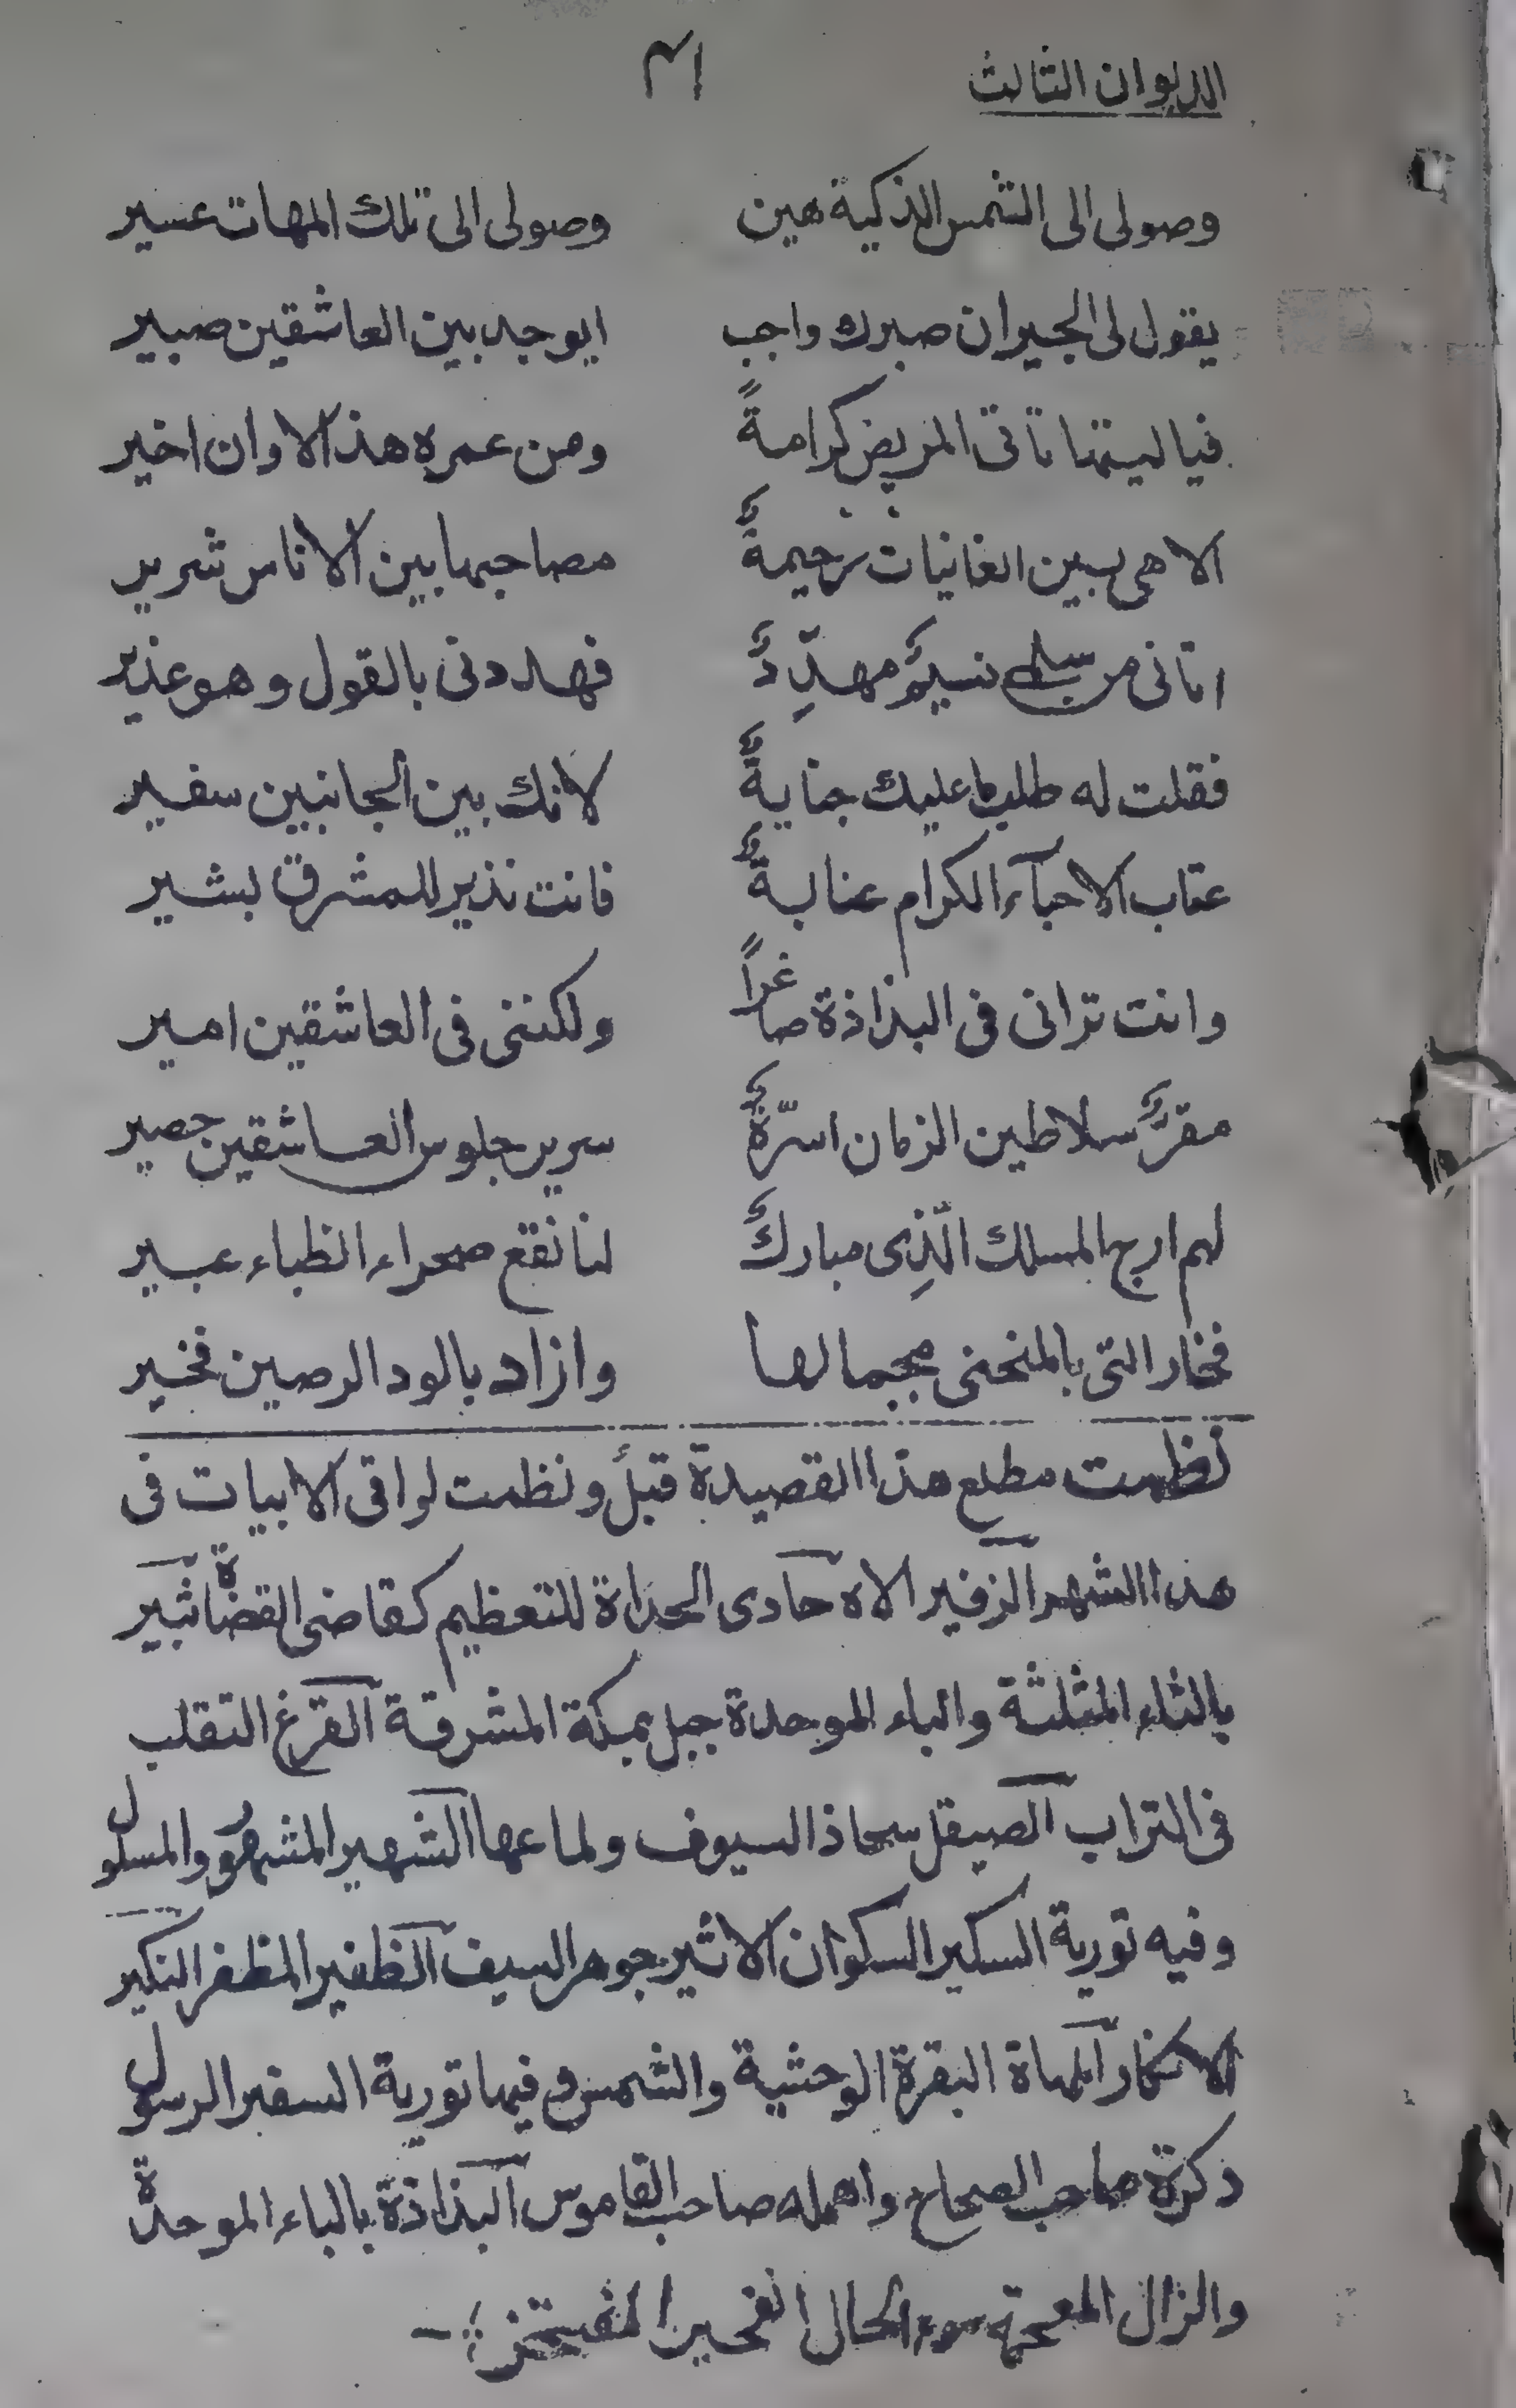 الديوان الثالث ٣١
وصولى الى الشمس الذكية هين وصولى الى تلك المهات عسير
يقول لى الجيران صبرك واجب ايوجد بين العاشقين صبير
فيا ليتها تاتى المريض كرامةً ومن عمره هذ الاوان اخير
الا هى بين الغانيات رحيمةٌ مصاحبها بين الاناس شرير
اتانى من سلمى نسيمٌ مهدِّدٌ فهددنى بالقول وهو عذير
فقلت له عليك جنايةٌ لانك بين الجانبين سفير
عتاب الاحبآء الكرام عنايةٌ فانت نذير للمشرق بشير
وانت ترانى فى البذاذة صاغراً ولكننى فى العاشقين امير
مقرُّ سلاطين الزمان اسرّةٌ سرير جلوس العاشقين حصير
لهم ارج المسك الّذِى مباركٌ لنا نقع صحراء الظباء عبير
فخار التى بالمنحنى بجمالها وازاد بالود الرصين فخير
نظمت مطلع هذا القصيدة قبلُ ونظمت لواقى الابيات فى
هذا الشهر الزفير الاه حادى الحداة للتعظيم كقاضى القضاة ثبير
بالثاء المثلثة والباء الموحدة جبل بمكة المشرقة القرغ التقلب
فى التراب الصيقل سحاذ السيوف ولماعها الشهير المشهور والمسلول
وفيه تورية السكير السكوان الاثير جوهر السيف الظفير المظفر النكير
الانكار المهاة البقرة الوحشية والشمس و فيها تورية السفير الرسول
ذكرة صاحب الصحاح واهمله صاحب القاموس البذاذة بالباء الموحدة
والزال المعجمة سوء الحال الفخير المفتخر